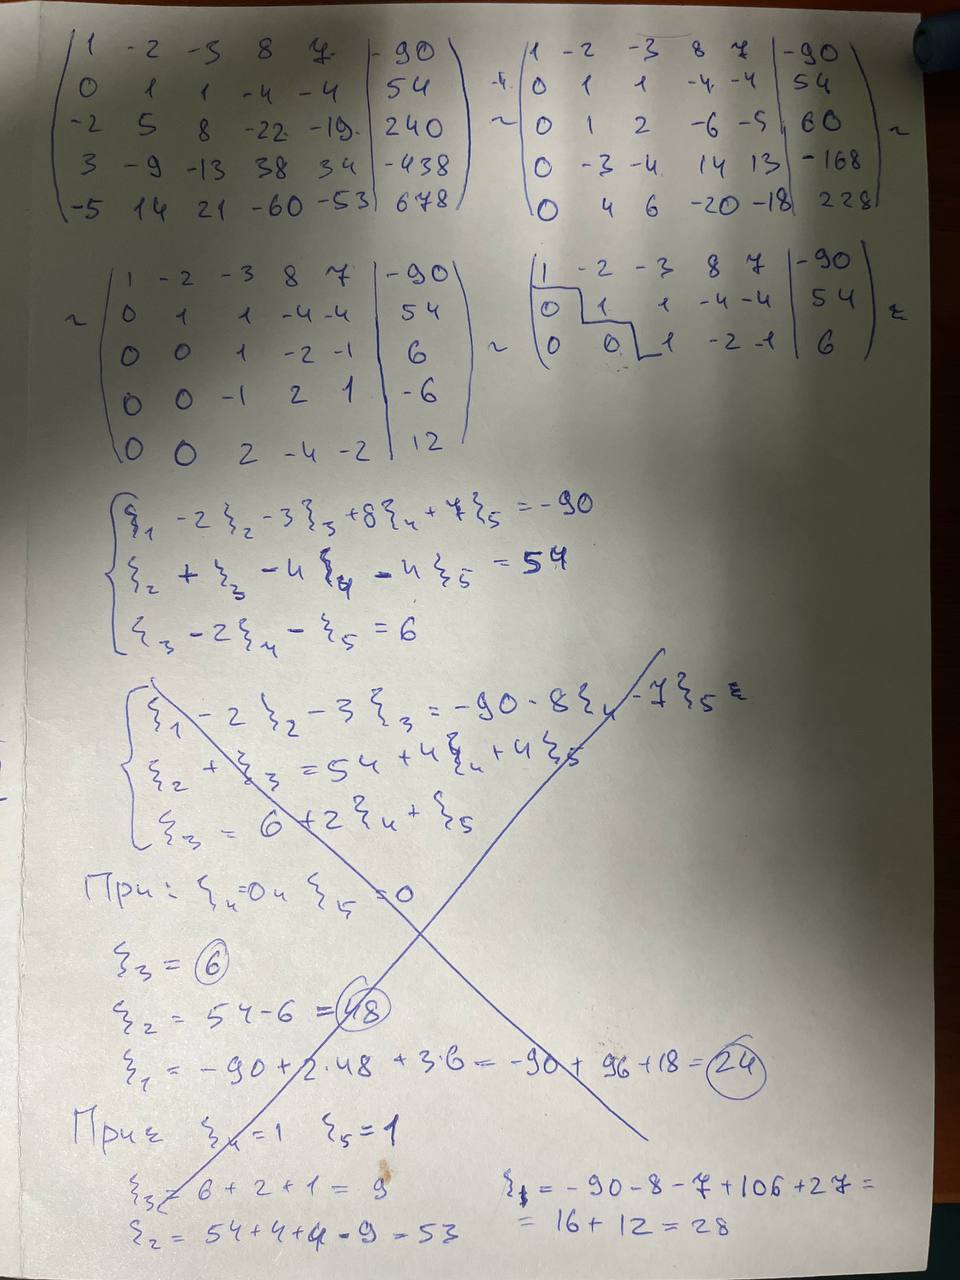 1 -2 -3 8 7 | -90
0 1 1 -4 -4 | 54
-2 5 8 -22 -19 | 240
3 -9 -13 38 34 | -438
-5 14 21 -60 -53 | 678
~
1 -2 -3 8 7 | -90
0 1 1 -4 -4 | 54
0 1 2 -6 -5 | 60
0 -3 -4 14 13 | -168
0 4 6 -20 -18 | 228
~
~
1 -2 -3 8 7 | -90
0 1 1 -4 -4 | 54
0 0 1 -2 -1 | 6
0 0 -1 2 1 | -6
0 0 2 -4 -2 | 12
~
1 -2 -3 8 7 | -90
0 1 1 -4 -4 | 54
0 0 1 -2 -1 | 6
ξ₁ -2ξ₂ -3ξ₃ +8ξ₄ +7ξ₅ = -90
ξ₂ + ξ₃ -4ξ₄ -4ξ₅ = 54
ξ₃ -2ξ₄ - ξ₅ = 6
ξ₁ -2ξ₂ -3ξ₃ = -90 -8ξ₄ -7ξ₅
ξ₂ + ξ₃ = 54 +4ξ₄ +4ξ₅
ξ₃ = 6 +2ξ₄ + ξ₅
При: ξ₄=0 и ξ₅ =0
ξ₃ = 6
ξ₂ = 54-6 = 48
ξ₁ = -90+2·48 +3·6 = -90 + 96 +18 = 24
При: ξ₄=1 ξ₅=1
ξ₃ = 6+2+1 = 9
ξ₂ = 54+4+4-9 = 53
ξ₁ = -90-8-7+106+27 =
= 16+12 = 28